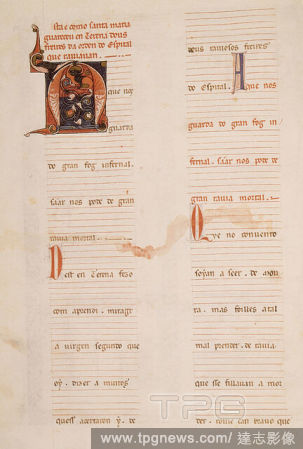 Esta e como santa maria
guardou en Terena dous
freires da orden do Espital
que raviavan.
A que nos
guarda
do gran fog infernal.
saar nos pode de gran
ravia mortal.
Dest en Terena fezo
com aprendi. miragr
a virgen segundo que
oý. dizer a muitos
quess acertaron ý. de
dous raviosos freires
do Espital. A que nos
guarda do gran fog in
fernal. saar nos pode de
gran ravia mortal.
Que no convento
soyan a seer. de mou
ra. mas foilles atal
mal prender. de ravia.
que sse fillavan a mor
der. come can bravo que
TPG
www.tpgnews.com/ 達志影像